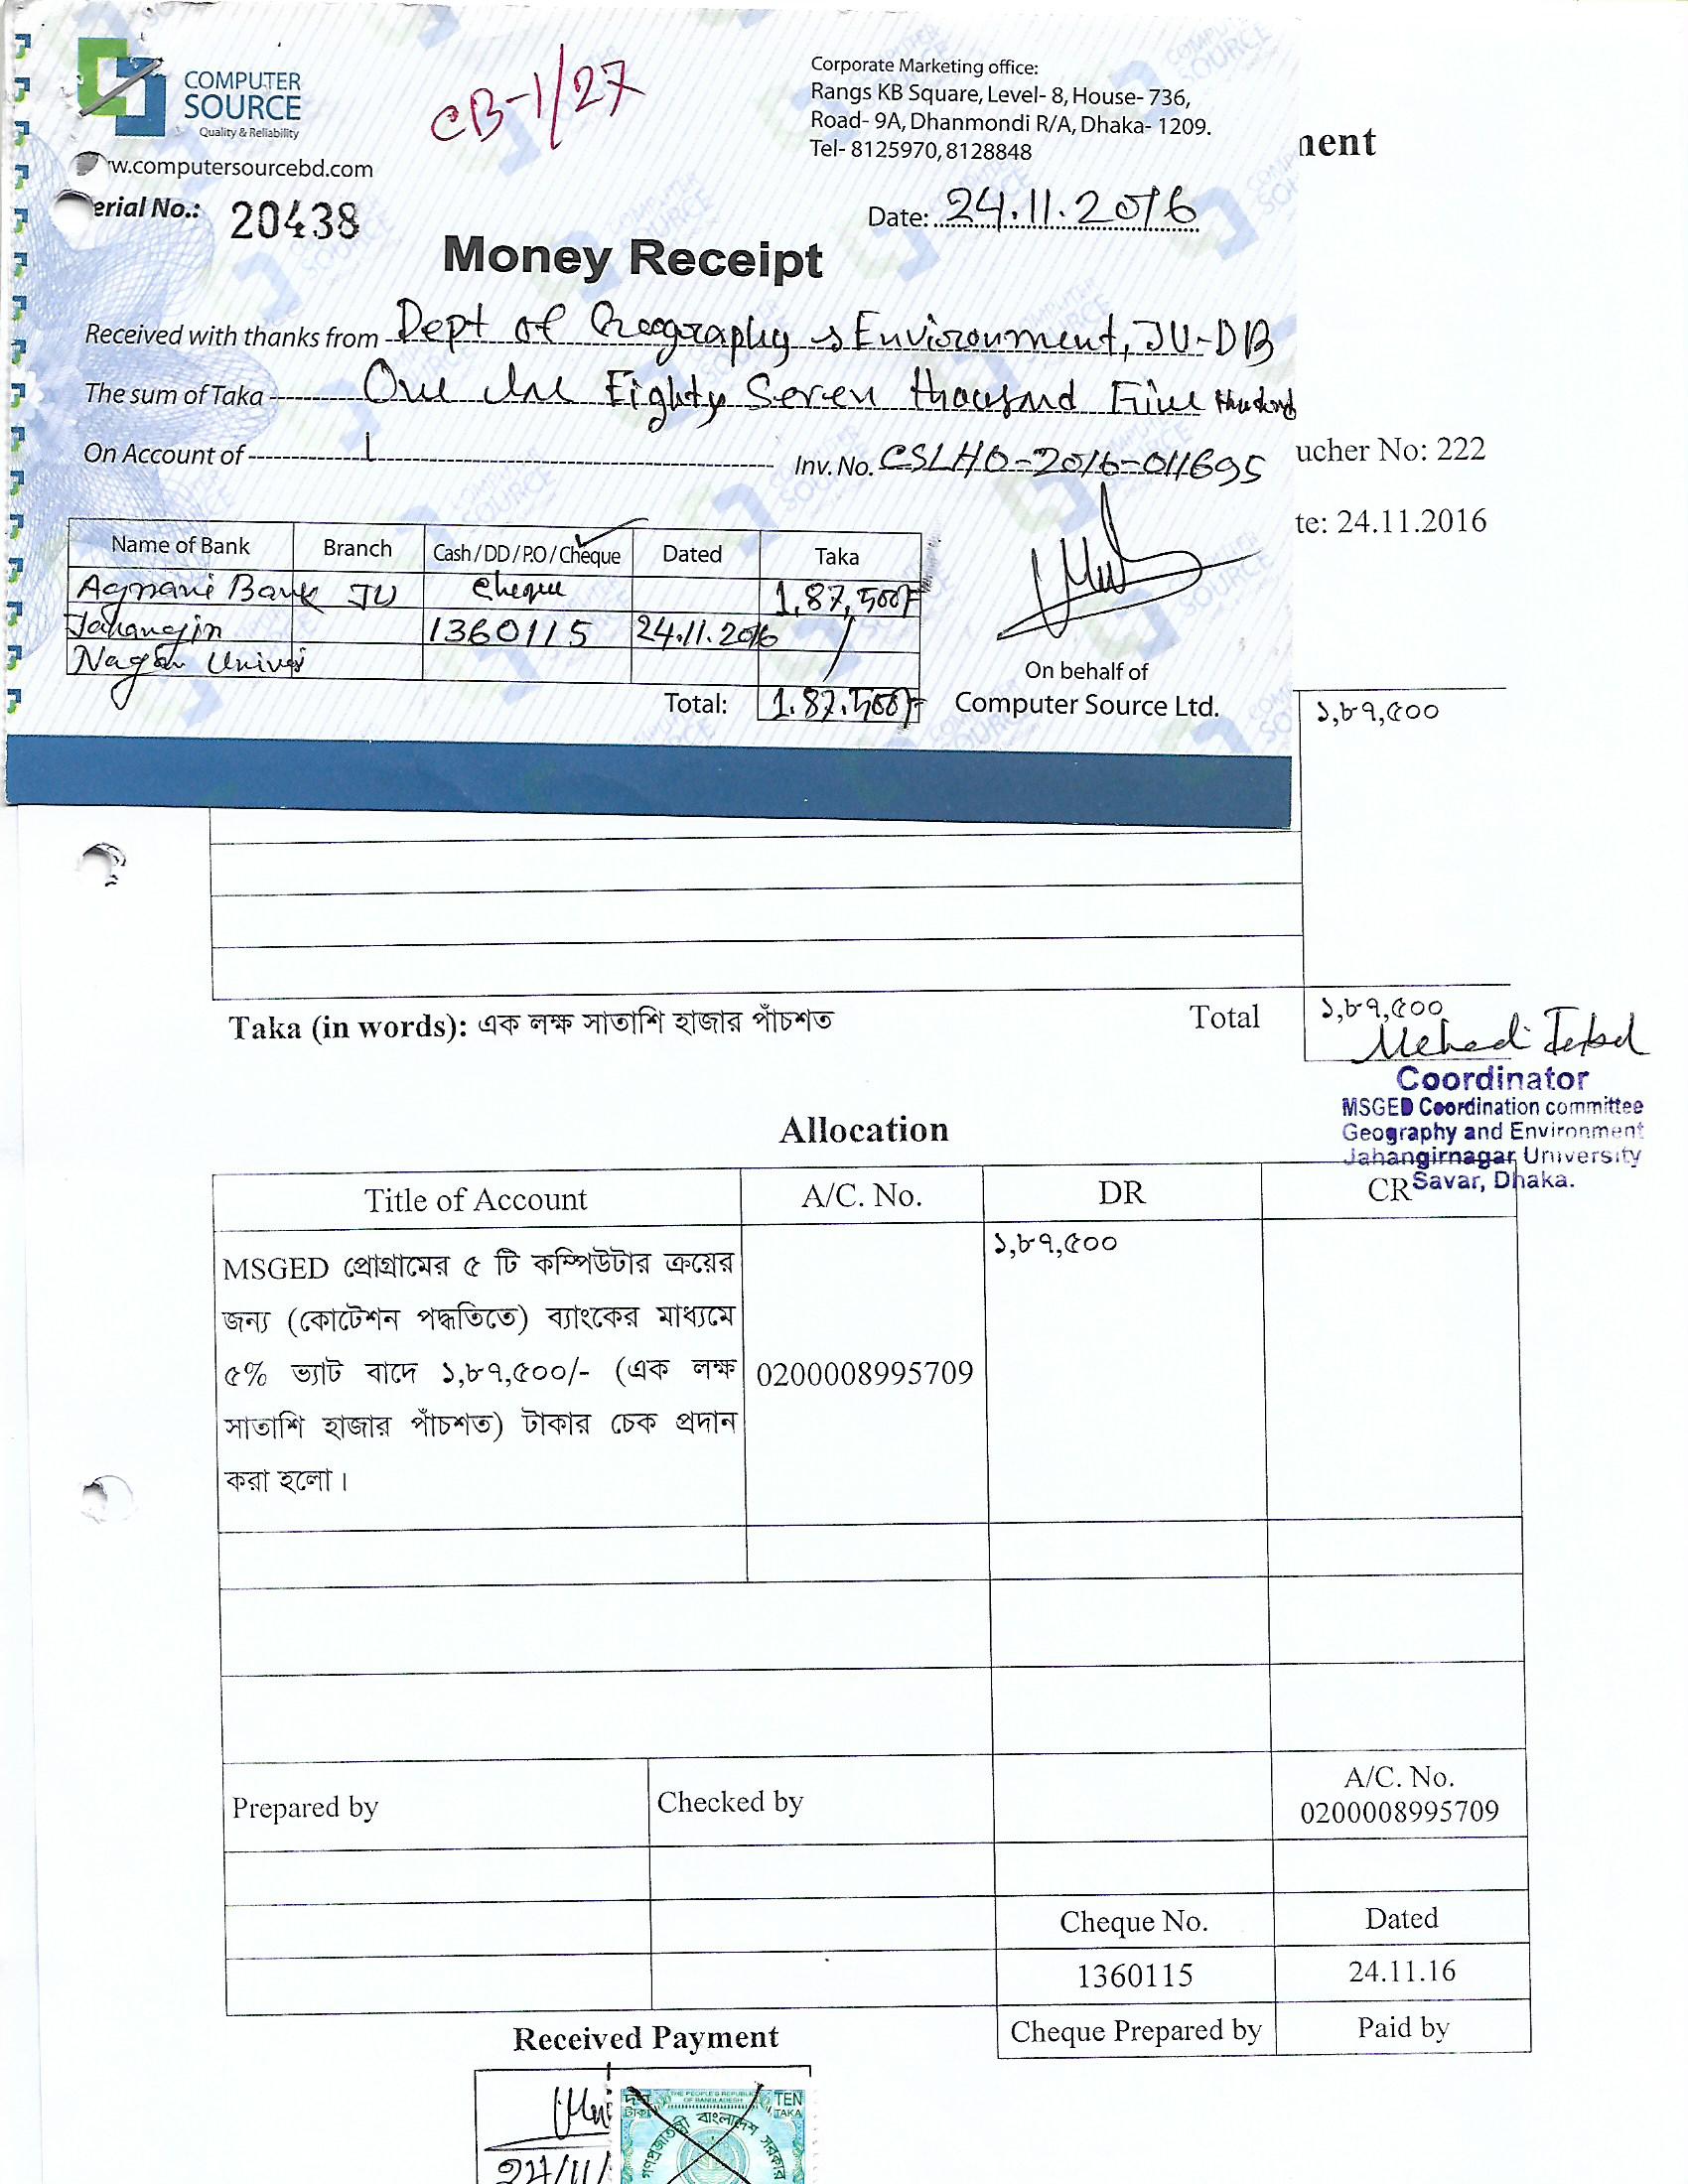 COMPUTER
SOURCE
Quality & Reliability
w.computersourcebd.com
erial No.: 20438
CB-1/27
Corporate Marketing office:
Rangs KB Square, Level- 8, House- 736,
Road- 9A, Dhanmondi R/A, Dhaka- 1209.
Tel- 8125970, 8128848
Date: 24.11.2016
Money Receipt
Received with thanks from Dept of Geography & Environment, JU-DB
The sum of Taka One Eighty Seven thousand Five Hundred
On Account of Inv. No. CSLHO-2016-011695
Name of Bank Branch Cash / DD / P.O / Cheque Dated Taka
Agrani Bank JU Cheque 1,87,500/-
Jahangir 1360115 24.11.2016
Nagar
Total: 1.87.500/-
On behalf of
Computer Source Ltd.
nent
ucher No: 222
te: 24.11.2016
১,৮৭,৫০০
Taka (in words): এক লক্ষ সাতাশি হাজার পাঁচশত Total ১,৮৭,৫০০
Coordinator
MSGED Coordination committee
Geography and Environment
Jahangirnagar University
Savar, Dhaka.
Allocation
Title of Account A/C. No. DR CR
MSGED প্রোগ্রামের ৫ টি কম্পিউটার ক্রয়ের
জন্য (কোটেশন পদ্ধতিতে) ব্যাংকের মাধ্যমে
৫% ভ্যাট বাদে ১,৮৭,৫০০/- (এক লক্ষ
সাতাশি হাজার পাঁচশত) টাকার চেক প্রদান
করা হলো।
0200008995709
১,৮৭,৫০০
Prepared by Checked by
A/C. No.
0200008995709
Cheque No. Dated
1360115 24.11.16
Cheque Prepared by Paid by
Received Payment
24/11/
দশ টাকা
THE PEOPLE'S REPUBLIC
OF BANGLADESH
TEN
TAKA
গণপ্রজাতন্ত্রী বাংলাদেশ সরকার